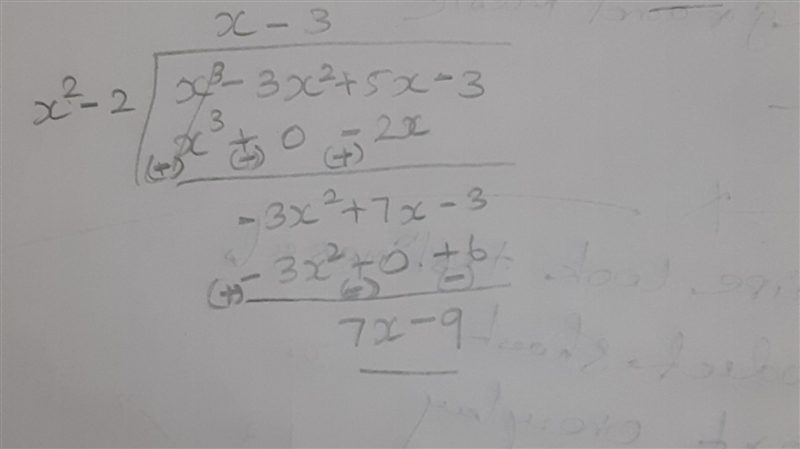 x - 3
x² - 2 | x³ - 3x² + 5x - 3
x³ + 0 - 2x
(-) (-) (+)
- 3x² + 7x - 3
- 3x² + 0 + 6
(+) (-) (-)
7x - 9